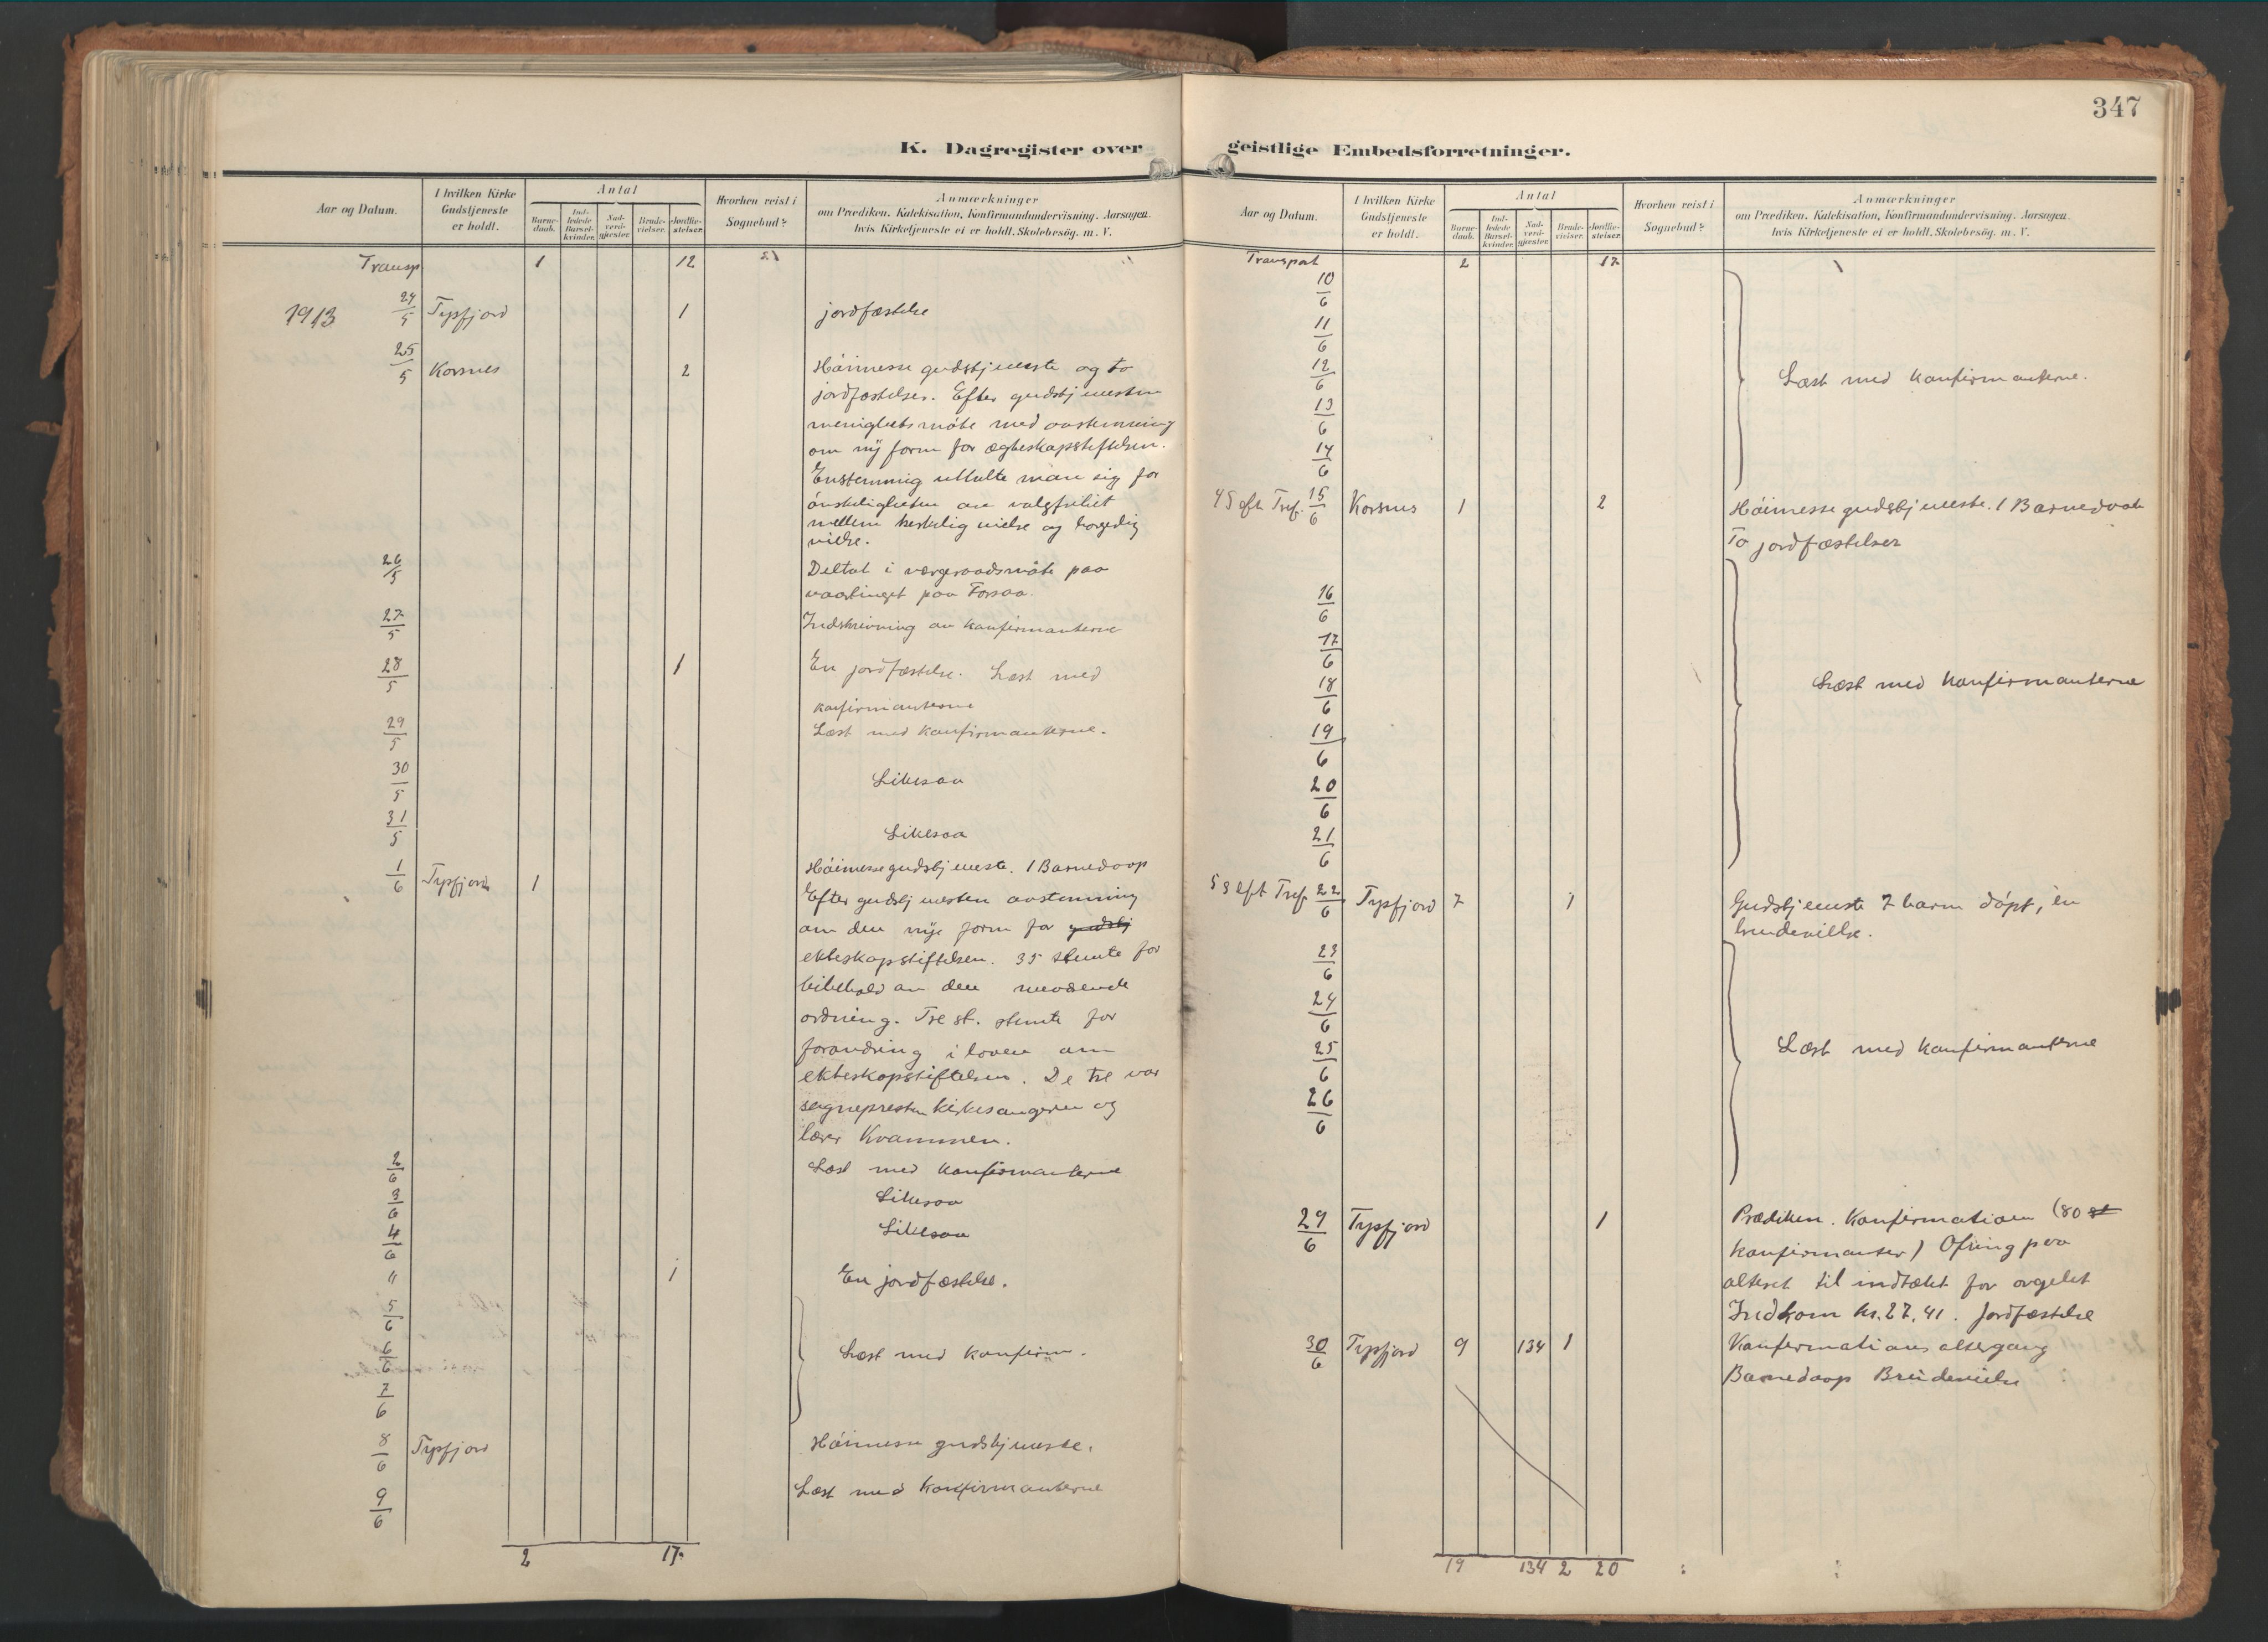 347
K. Dagregister over
Aar og Datum.
I hvilken Kirke Gudstjeneste er holdt.
Antal
Barnedaab.
Indledede Barselkvinder.
Nadverdgjæster.
Brudevielser.
Jordfæstelser.
Hvorhen reist i Sognebud?
Anmærkninger
om Prædiken, Katekisation, Konfirmandundervisning. Aarsagen
hvis Kirketjeneste ei er holdt. Skolebesøg. m. V.
Transp 1 12
1913 24/5 Tysfjord 1 jordfæstelse
25/5 Korsnes 2 Höimesse gudstjeneste og to
jordfæstelser. Efter gudstjenesten
menighetsmöte med avstemning
om ny form for ægteskapsstiftelsen.
Enstemmig uttalte man sig for
önskeligheten av valgfrihet
mellem kirkelig vielse og borgerlig
vielse.
26/5 Deltat i vergeraadsmöte paa
vaartinget paa Forsaa.
27/5 Indskrivning av konfirmanterne
28/5 1 En jordfæstelse. Læst med
konfirmanterne
29/5 Læst med konfirmanterne.
30/5 Likesaa
31/5 Likesaa
1/6 Tysfjord 1 Höimessegudstjeneste. 1 Barnedaap
Efter gudstjenesten avstemning
om den nye form for gudstj
ekteskapstiftelsen. 35 stemte for
bibehold av den nuværende
ordning. Tre st. stemte for
forandring i loven om
ekteskapstiftelsen. De tre var
sognepresten kirkesangeren og
lærer Kvammen.
2/6 Læst med konfirmanterne
3/6 Likesaa
4/6 Likesaa
" 1 En jordfæstelse.
5/6
6/6 Læst med konfirm.
7/6
8/6 Tysfjord Höimesse gudstjeneste.
9/6 Læst med konfirmanterne
2 17
geistlige Embedsforretninger.
Aar og Datum.
I hvilken Kirke Gudstjeneste er holdt.
Antal
Barnedaab.
Indledede Barselkvinder.
Nadverdgjæster.
Brudevielser.
Jordfæstelser.
Hvorhen reist i Sognebud?
Anmærkninger
om Prædiken, Katekisation, Konfirmandundervisning. Aarsagen
hvis Kirketjeneste ei er holdt. Skolebesøg. m. V.
Transport 2 17
10/6
11/6
12/6 Læst med konfirmanterne.
13/6
14/6
4 S eft Tref. 15/6 Korsnes 1 2 Höimesse gudstjeneste. 1 Barnedaab
To jordfæstelser
16/6
17/6
18/6 Læst med konfirmanterne
19/6
20/6
21/6
5 S eft Tref 22/6 Tysfjord 7 1 Gudstjeneste 7 barn döpt, en
brudevielse.
23/6
24/6
25/6 Læst med konfirmanterne
26/6
29/6 Tysfjord 1 Prædiken. Konfirmation (80 st
konfirmanter) Ofring paa
alteret til indtækt for orgelet
Indkom kr. 27,41. Jordfæstelse
30/6 Tysfjord 9 134 1 Konfirmations altergang
Barnedaap Brudevielse
19 134 2 20